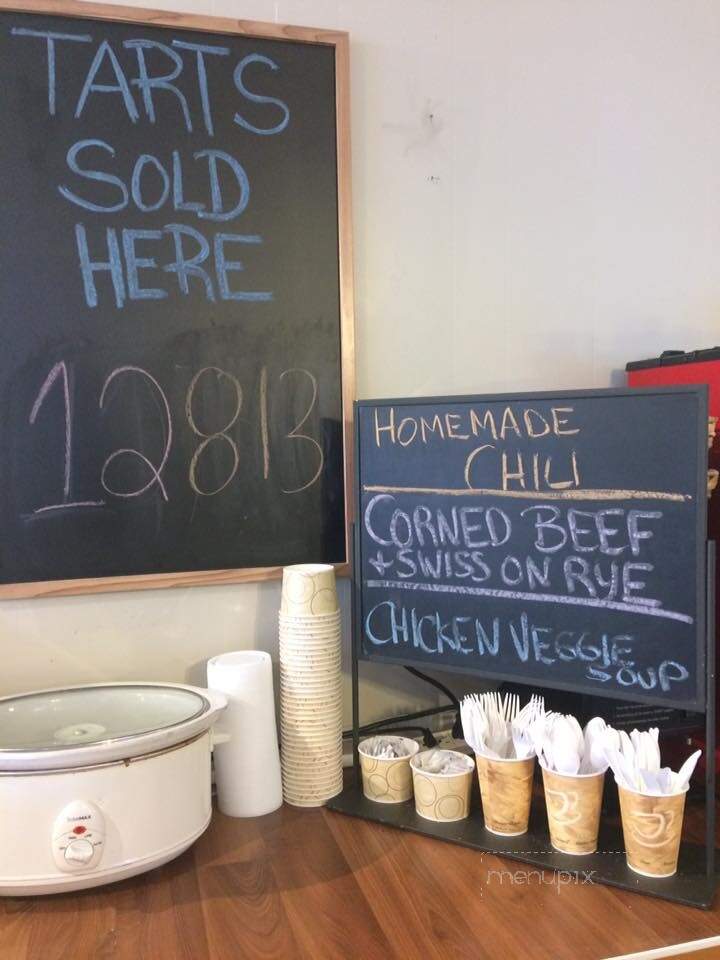 TARTS
SOLD
HERE
12813
HOMEMADE
CHILI
CORNED BEEF
+ SWISS ON RYE
CHICKEN VEGGIE
SOUP
menupix